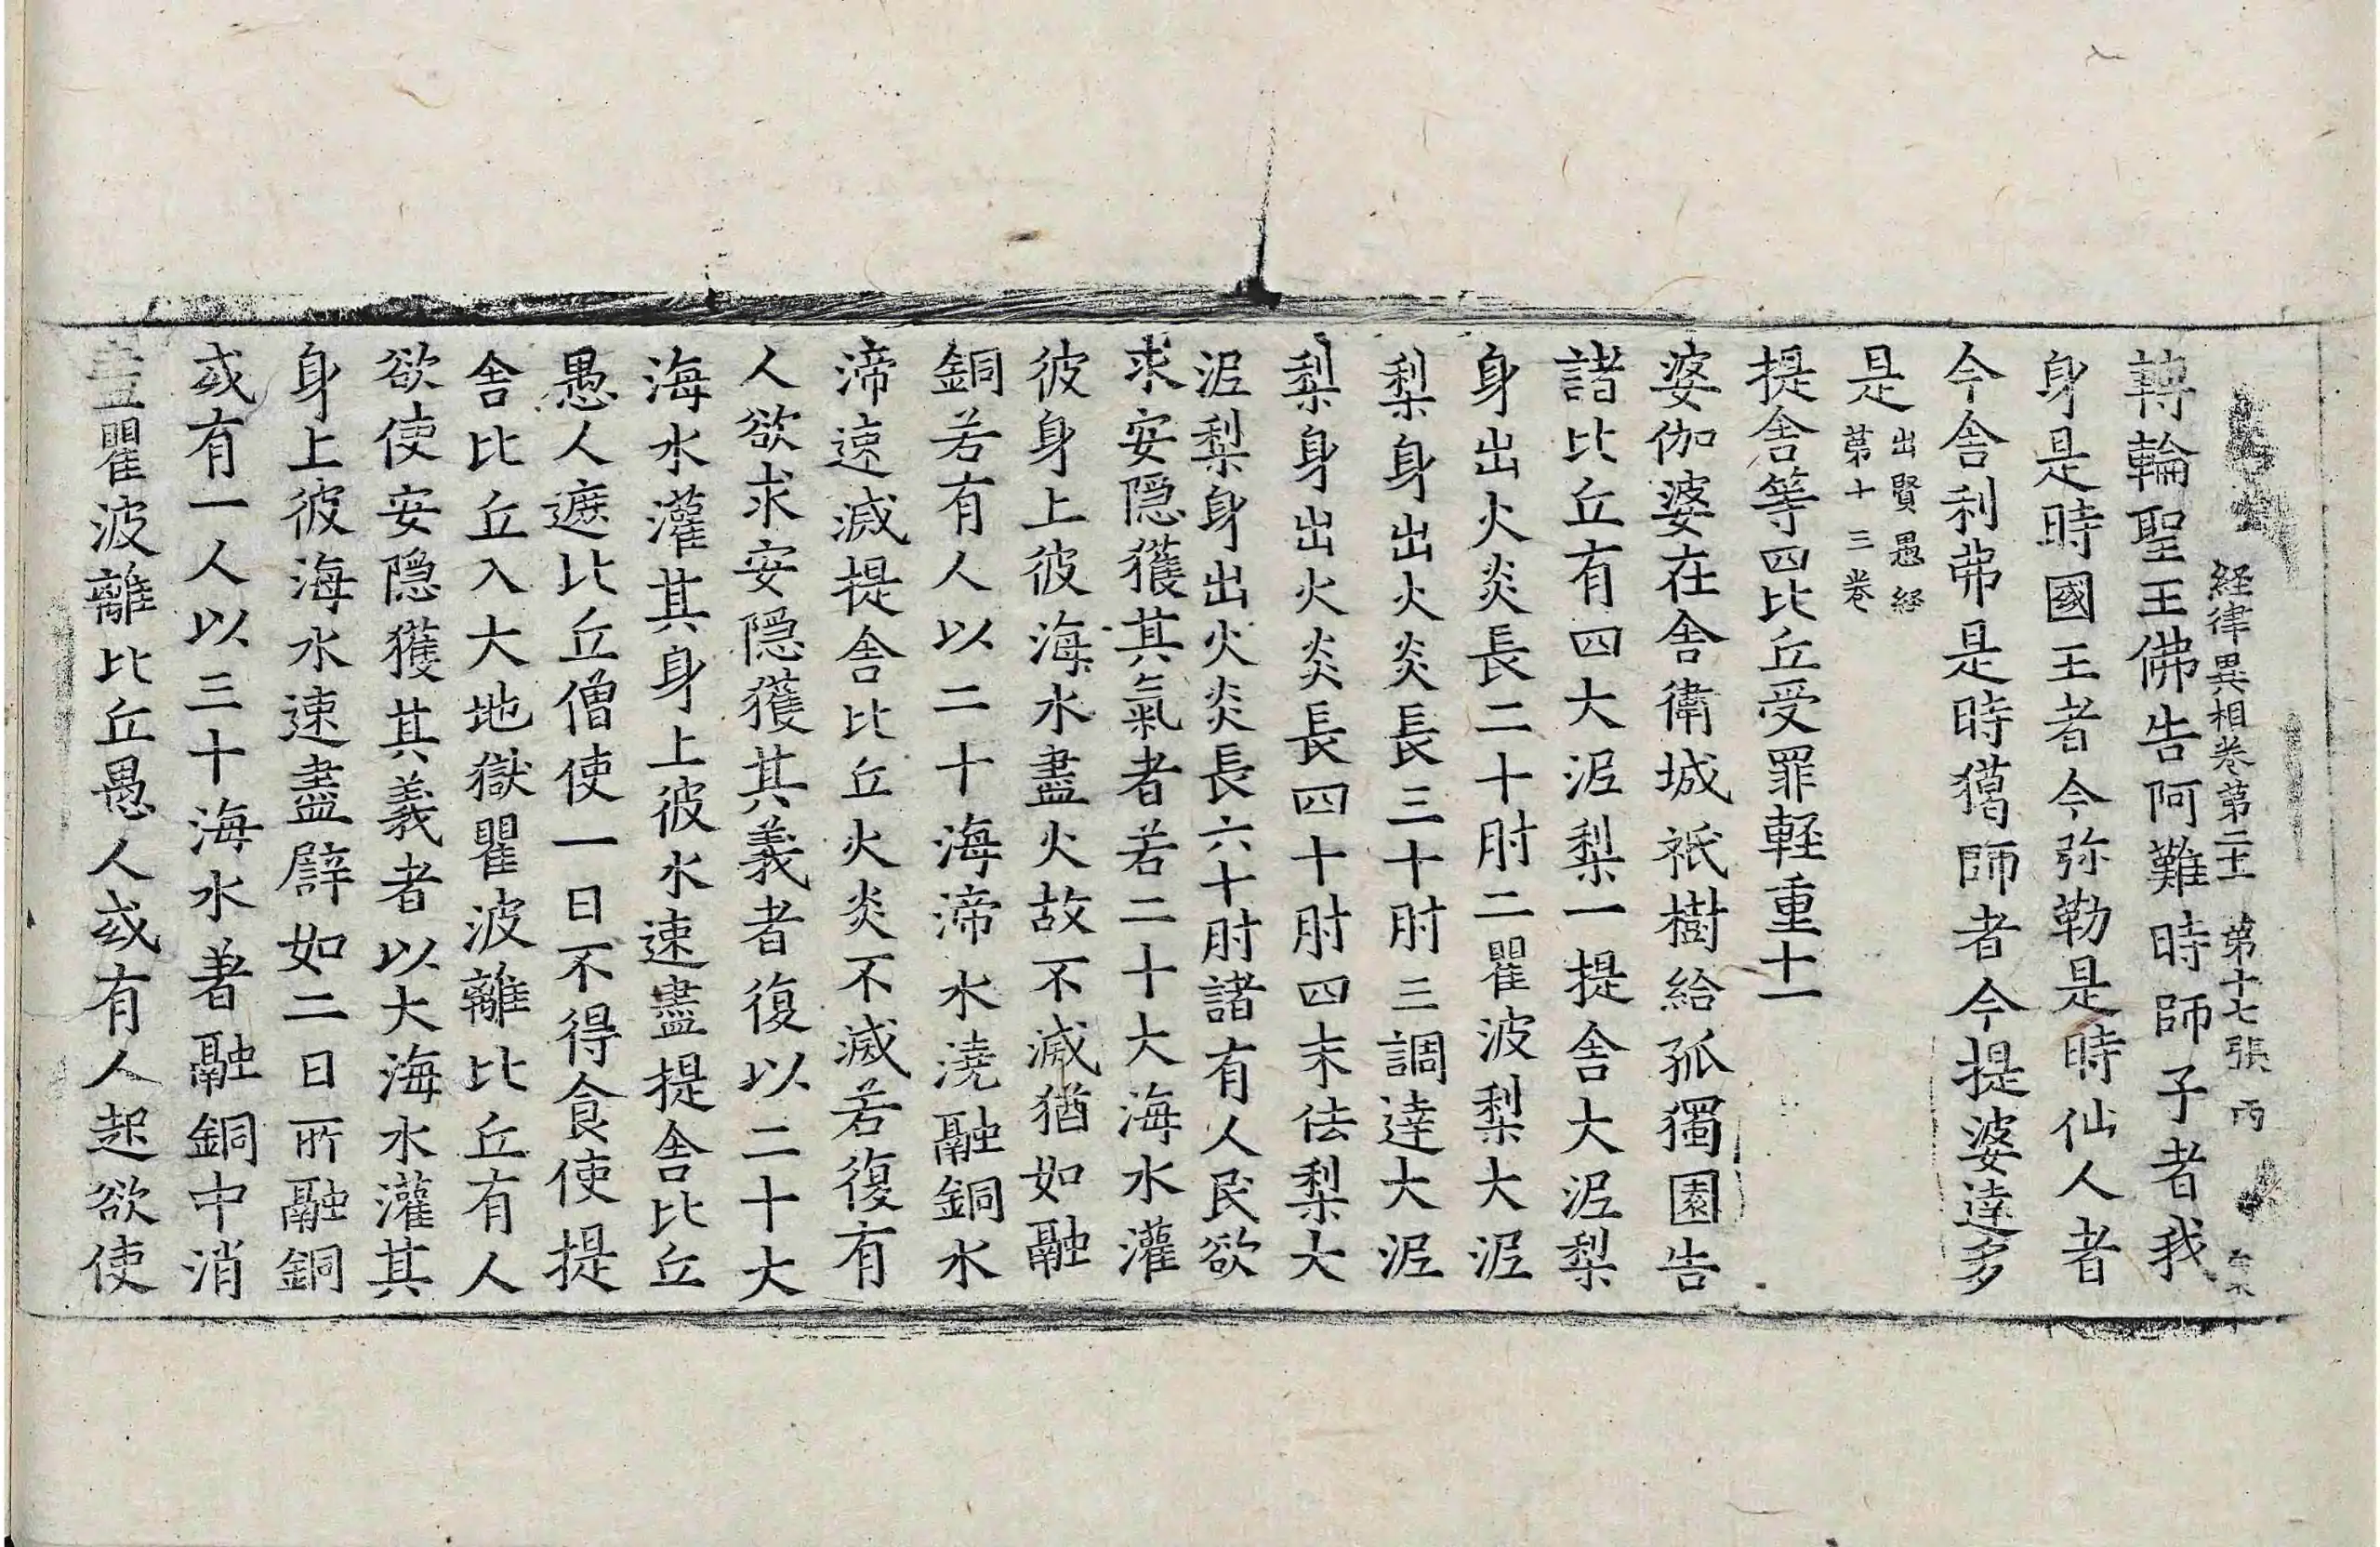 経律異相卷第二十一 第十七張 丙
轉輪聖王佛告阿難時師子者我
身是時國王者今弥勒是時仙人者
今舍利弗是時獦師者今提婆達多
是出賢愚経
第十三卷
提舍等四比丘受罪輕重十一
婆伽婆在舍衛城祇樹給孤獨園告
諸比丘有四大泥梨一提舍大泥梨
身出火炎長二十肘二瞿波梨大泥
梨身出火炎長三十肘三調達大泥
梨身出火炎長四十肘四末佉梨大
泥梨身出火炎長六十肘諸有人民欲
求安隱獲其氣者若二十大海水灌
彼身上彼海水盡火故不滅猶如融
銅若有人以二十海渧水澆融銅水
渧速滅提舍比丘火炎不滅若復有
人欲求安隱獲其義者復以二十大
海水灌其身上彼水速盡提舍比丘
愚人遮比丘僧使一日不得食使提
舍比丘入大地獄瞿波離比丘有人
欲使安隱獲其義者以大海水灌其
身上彼海水速盡譬如二日所融銅
或有一人以三十海水著融銅中消
盡瞿波離比丘愚人或有人起欲使